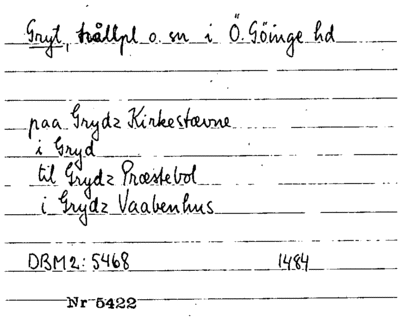 Gryt, hållpl o. sn i Ö. Göinge hd
paa Grydz Kirkestævne
i Gryd
til Grydz Præstebol
i Grydz Vaabenhus
DBM2: 5468 1484
Nr 5422